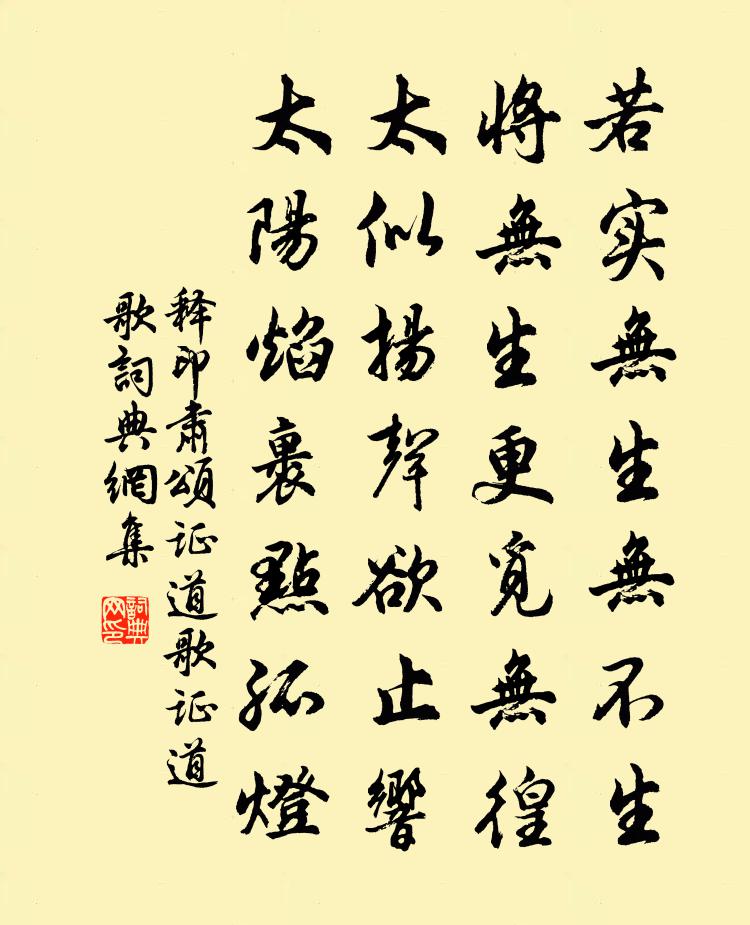 若实無生無不生
將無生更覓無徨
太似揚聲欲止響
太陽焰裏點孤燈
释印肃頌证道歌证道
歌詞典網集
詞典
网印